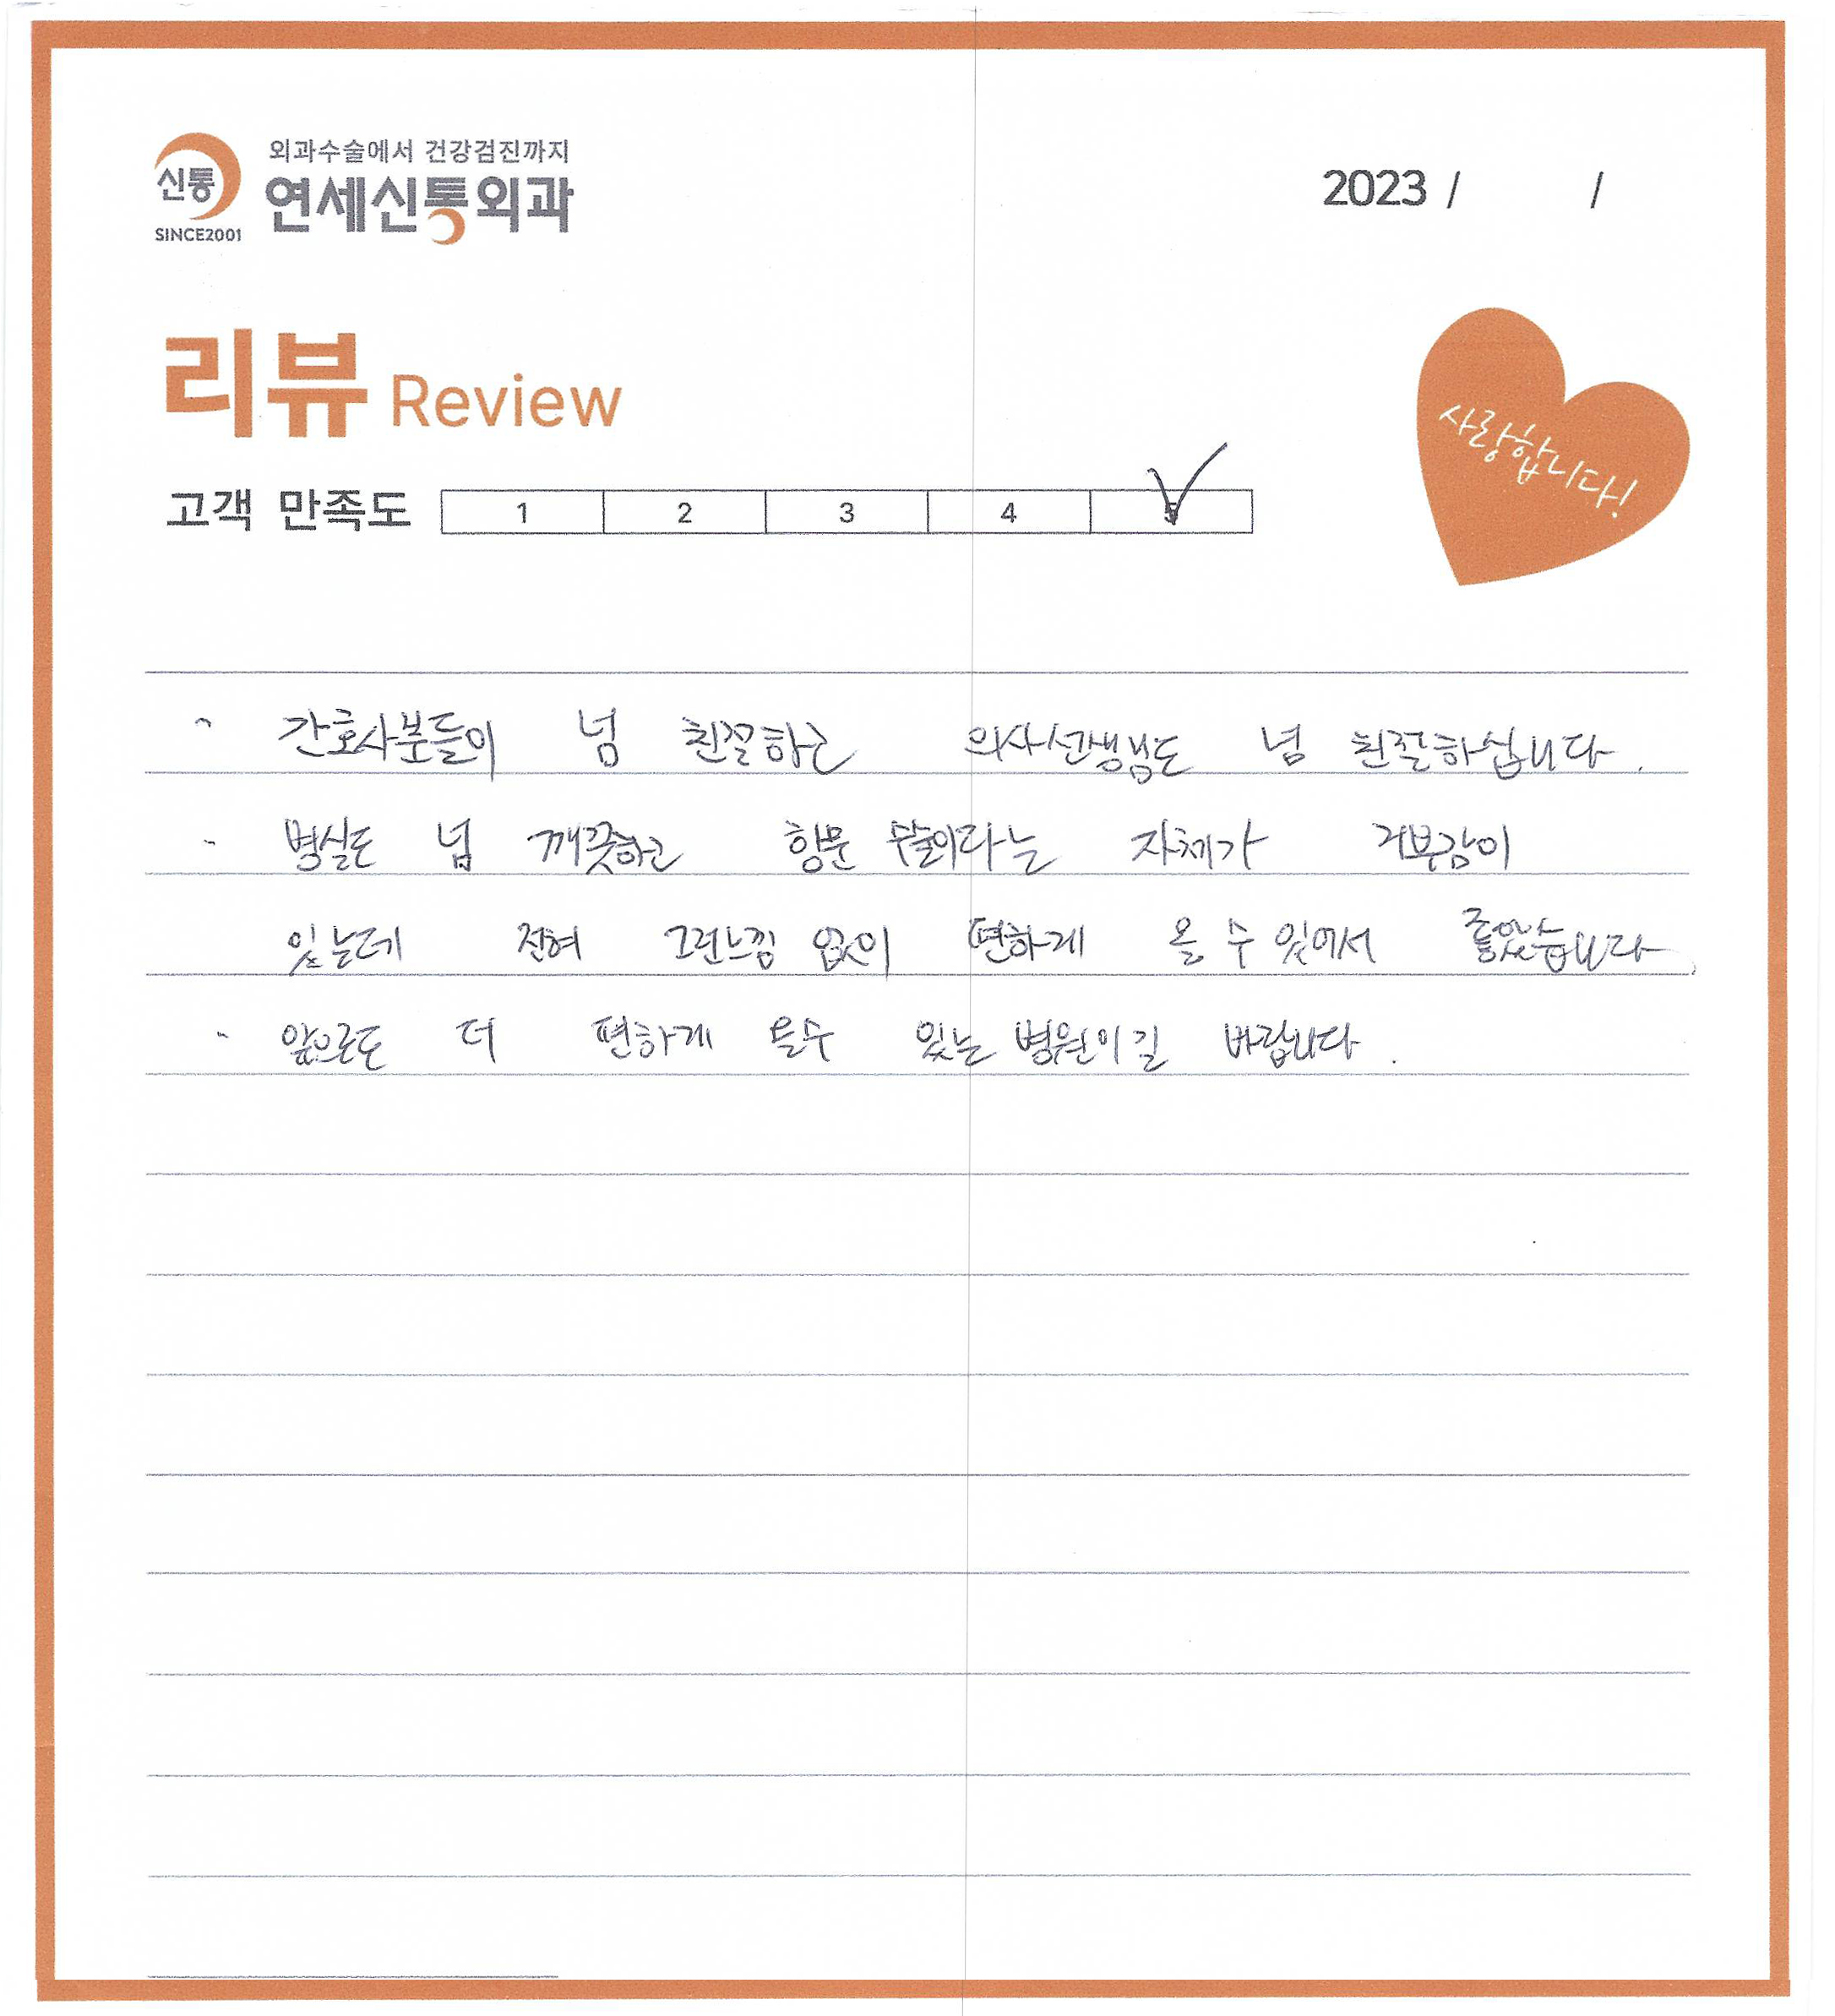 외과수술에서 건강검진까지
신통
연세신통외과
SINCE2001
2023 /      /
리뷰 Review
사랑합니다!
고객 만족도 1 2 3 4 5
- 간호사분들이 넘 친절하고 의사선생님도 넘 친절하십니다.
- 병실도 넘 깨끗하고 항문 수술이라는 자체가 거부감이
있는데 전혀 그런느낌 없이 편하게 올 수 있어서 좋았습니다
- 앞으로도 더 편하게 올수 있는 병원이길 바랍니다.